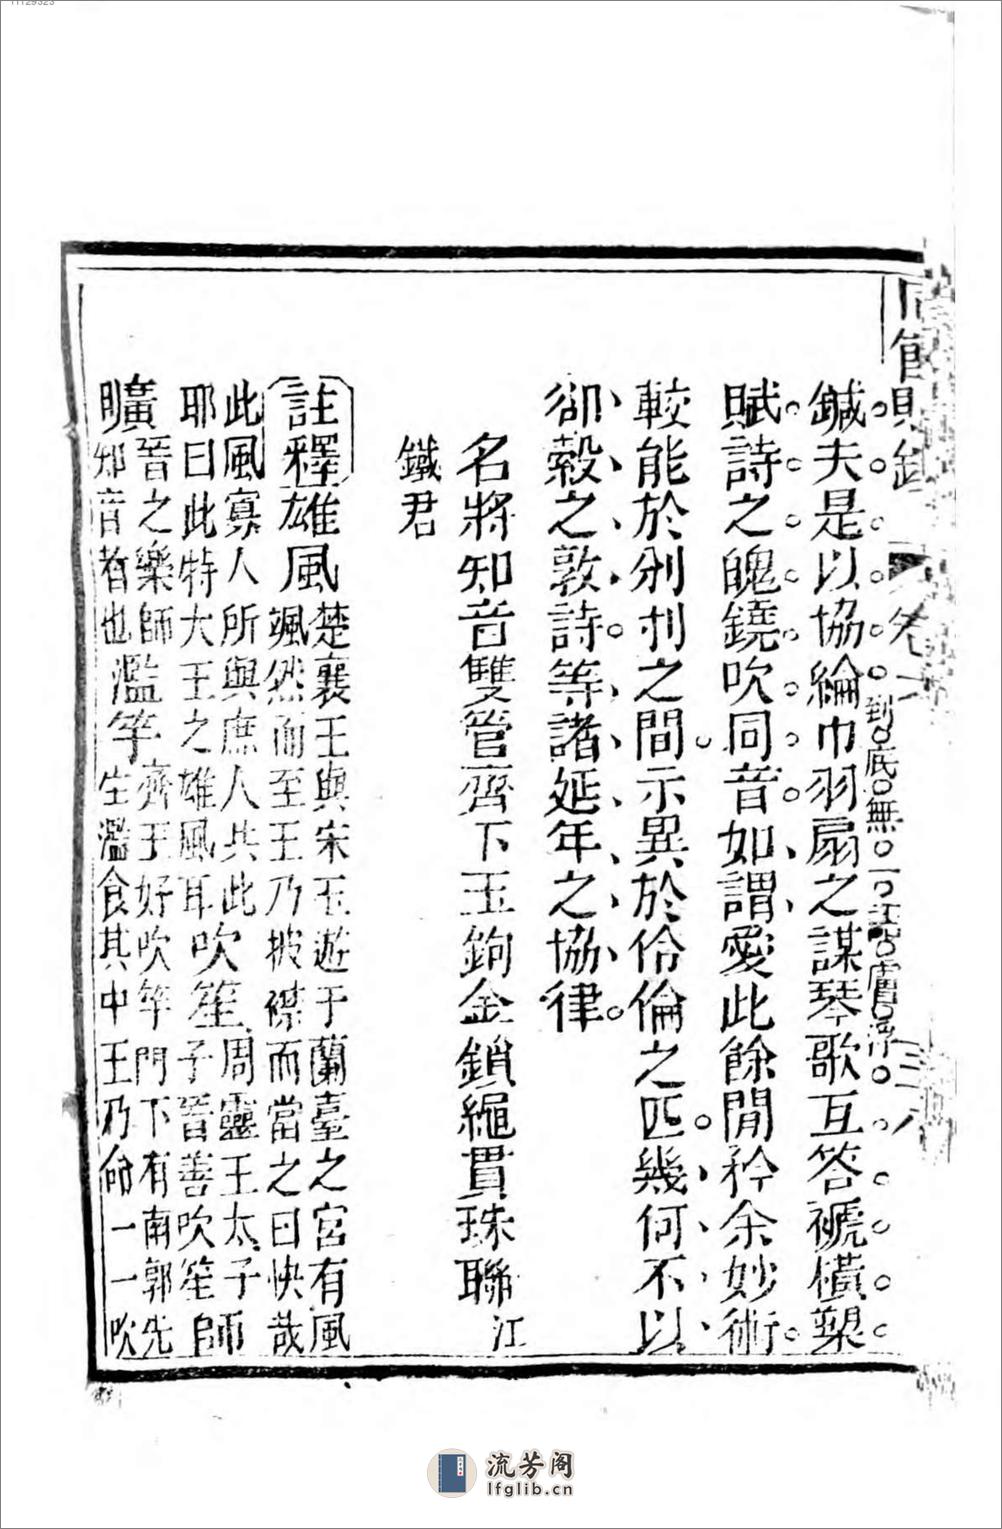 11129323
鍼夫是以協綸巾羽扇之謀琴歌互答褫橫槊
到底無一語膚浮
賦詩之魄鐃吹同音如謂愛此餘閒矜余妙術
較能於刌刌之間示異於伶倫之匹幾何不以
卻縠之敦詩等諸延年之協律
名將知音雙管齊下玉鉤金鎖繩貫珠聯 江
鐵君
註釋 雄風 楚襄王與宋玉遊于蘭臺之宮有風
颯然而至王乃披襟而當之曰快哉
此風寡人所與庶人共此 吹笙 周靈王太子師
耶曰此特大王之雄風耳 子晉善吹笙 師
曠 晉之樂師 濫竽 齊王好吹竽門下有南郭先
知音者也 生濫食其中王乃命一一吹
卷一
流芳阁
lfglib.cn